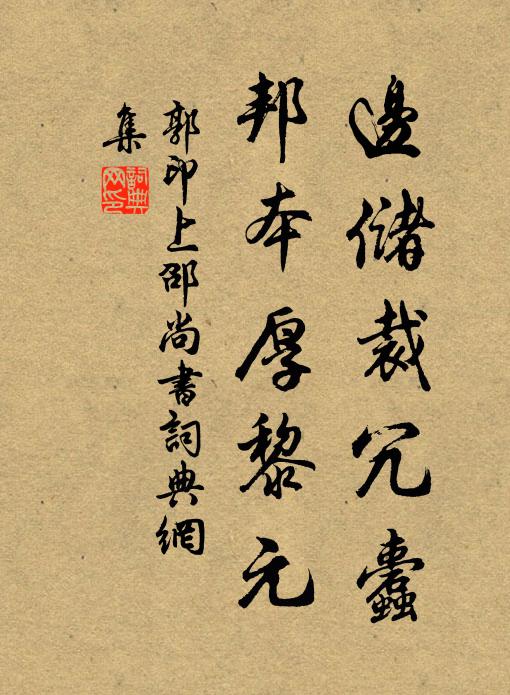 邊儲裁冗蠹
邦本厚黎元
郭印上邵尚書詞典網
集
詞典
网印